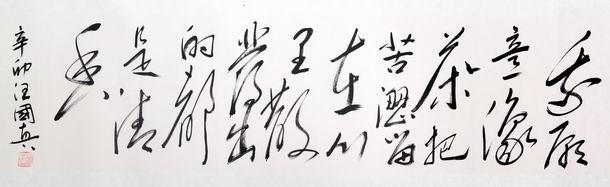 我愿
意像
茶把
苦澀留
在心
里散
發出
的都
是清
香
辛卯汪國真